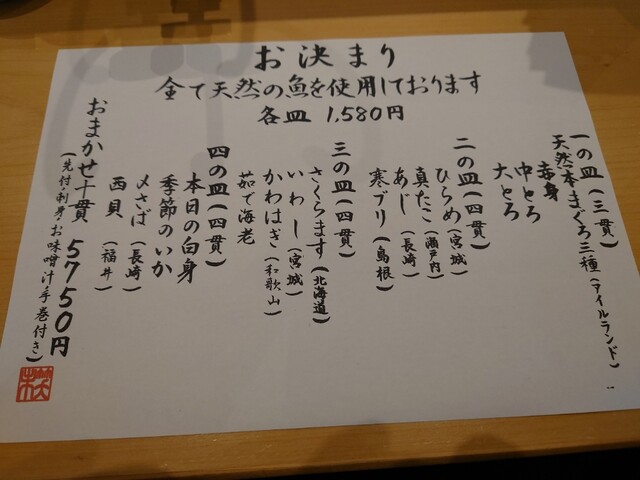 お決まり
全て天然の魚を使用しております
各皿 1,580円
一の皿(三貫)
天然本まぐろ三種(アイルランド)
赤身
中とろ
大とろ
二の皿(四貫)
ひらめ(宮城)
真たこ(瀬戸内)
あじ(長崎)
寒ブリ(島根)
三の皿(四貫)
さくらます(北海道)
いわし(宮城)
かわはぎ(和歌山)
茹で海老
四の皿(四貫)
本日の白身
季節のいか
〆さば(長崎)
西貝(福井)
おまかせ十貫 5750円
(先付刺身お味噌汁手巻付き)